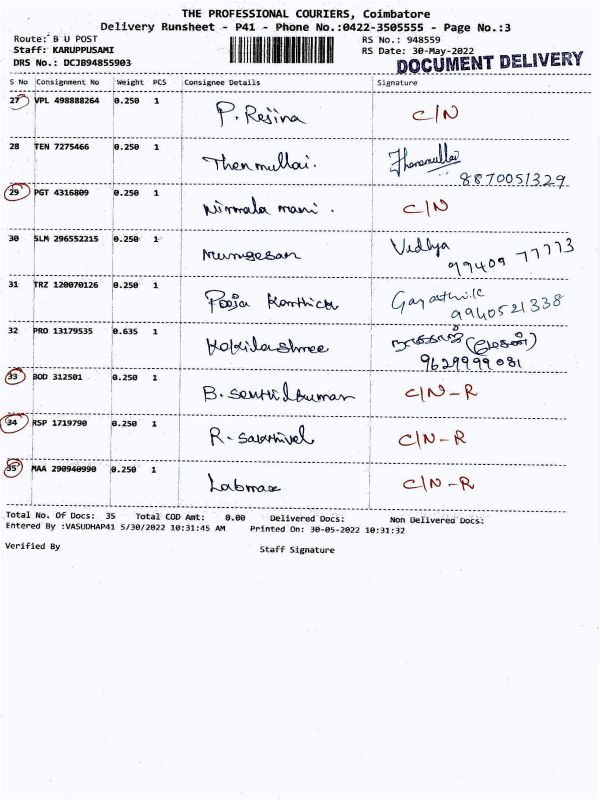 THE PROFESSIONAL COURIERS, Coimbatore
Delivery Runsheet - P41 - Phone No.:0422-3505555 - Page No.:3
Route: B U POST RS No.: 948559
Staff: KARUPPUSAMI RS Date: 30-May-2022
DRS No.: DCJB94855903 DOCUMENT DELIVERY
S No Consignment No Weight PCS Consignee Details Signature
27 VPL 498888264 0.250 1 P. Rejina C/N
28 TEN 7275466 0.250 1 Thenmullai. Thenmullai
8870051329
29 PGT 4316809 0.250 1 Nirmala mani. C/N
30 SLM 296552215 0.250 1 Murugesan Vidhya
99409 77773
31 TRZ 120070126 0.250 1 Pooja Karthick Gayathri.K
9940521338
32 PRO 13179535 0.635 1 Kokilashree
9629999081
33 BOD 312501 0.250 1 B. Senthilkumar C/N-R
34 RSP 1719790 0.250 1 R. Sakthivel C/N-R
35 MAA 290940990 0.250 1 Labmax C/N-R
Total No. Of Docs: 35 Total COD Amt: 0.00 Delivered Docs: Non Delivered Docs:
Entered By :VASUDHAP41 5/30/2022 10:31:45 AM Printed On: 30-05-2022 10:31:32
Verified By Staff Signature